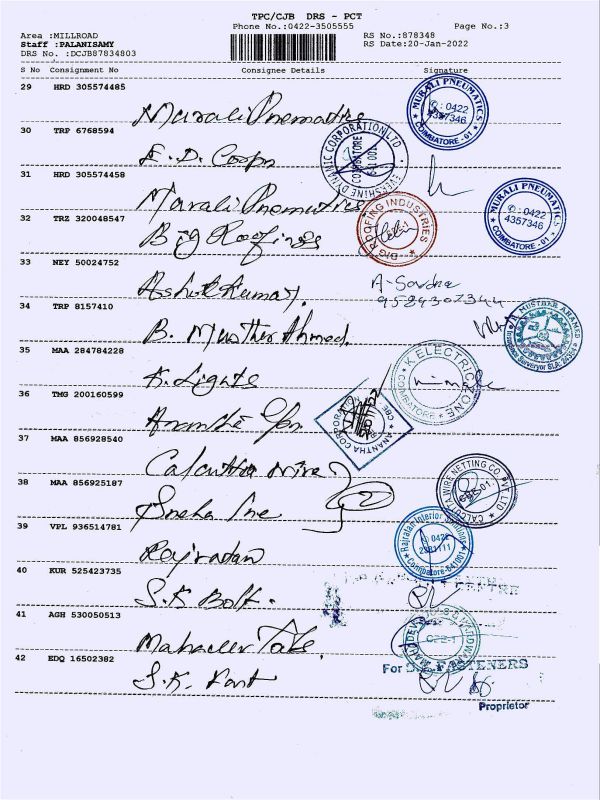 TPC/CJB DRS - PCT
Phone No.:0422-3505555 Page No.:3
Area :MILLROAD RS No.:878348
Staff :PALANISAMY RS Date:20-Jan-2022
DRS No. :DCJB87834803
S No Consignment No Consignee Details Signature
29 HRD 305574485
Murali Pnematics
MURALI PNEUMATICS
✆: 0422
4357346
COIMBATORE - 01
30 TRP 6768594
E. D. Corpn
EVERSHINE DYNAMIC CORPORATION LTD
COIMBATORE
641 001
31 HRD 305574458
Murali Pnematics
MURALI PNEUMATICS
✆: 0422
4357346
COIMBATORE - 01
32 TRZ 320048547
Big Roofings
BIG ROOFING INDUSTRIES
33 NEY 50024752
Ashok Kumar.
34 TRP 8157410
B. Musther Ahmed.
B. MUSTHER AHAMED
35 MAA 284784228
K. Lights
K ELECTRIC ZONE
COIMBATORE
36 TMG 200160599
Anantha Corpn
ANANTHA CORPORATION
37 MAA 856928540
Calcutta Wire
CALCUTTA WIRE NETTING CO. PVT. LTD
CBE-01.
38 MAA 856925187
Sneha Ine
39 VPL 936514781
Rajratan
Rajratan Interior
0422
Coimbatore-641001
40 KUR 525423735
S.K Bolt.
41 AGH 530050513
Mahaveer
CBE-1
42 EDQ 16502382
S.K.
For S.K. FASTENERS
Proprietor